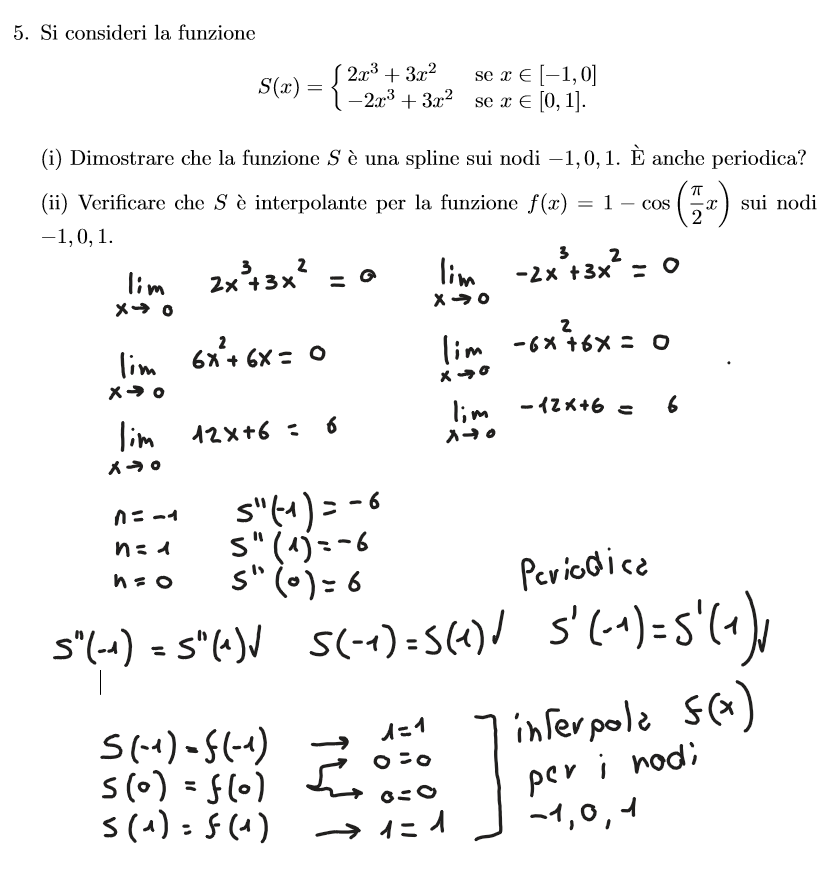 5. Si consideri la funzione
S(x) = { 2x³ + 3x² se x ∈ [−1, 0]
−2x³ + 3x² se x ∈ [0, 1].
(i) Dimostrare che la funzione S è una spline sui nodi −1, 0, 1. È anche periodica?
(ii) Verificare che S è interpolante per la funzione f(x) = 1 − cos(π/2 x) sui nodi
−1, 0, 1.
lim x→0 2x³+3x² = 0 lim x→0 -2x³+3x² = 0
lim x→0 6x²+6x = 0 lim x→0 -6x²+6x = 0
lim x→0 12x+6 = 6 lim x→0 -12x+6 = 6
n=-1 S"(-1) = -6
n=1 S"(1) = -6
n=0 S"(0) = 6
Periodica
S"(-1) = S"(1)√ S(-1)=S(1)√ S'(-1)=S'(1)√
S(-1)=f(-1) → 1=1
S(0) = f(0) → 0=0
→ 0=0
S(1) = f(1) → 1=1
interpola f(x)
per i nodi
-1,0,1